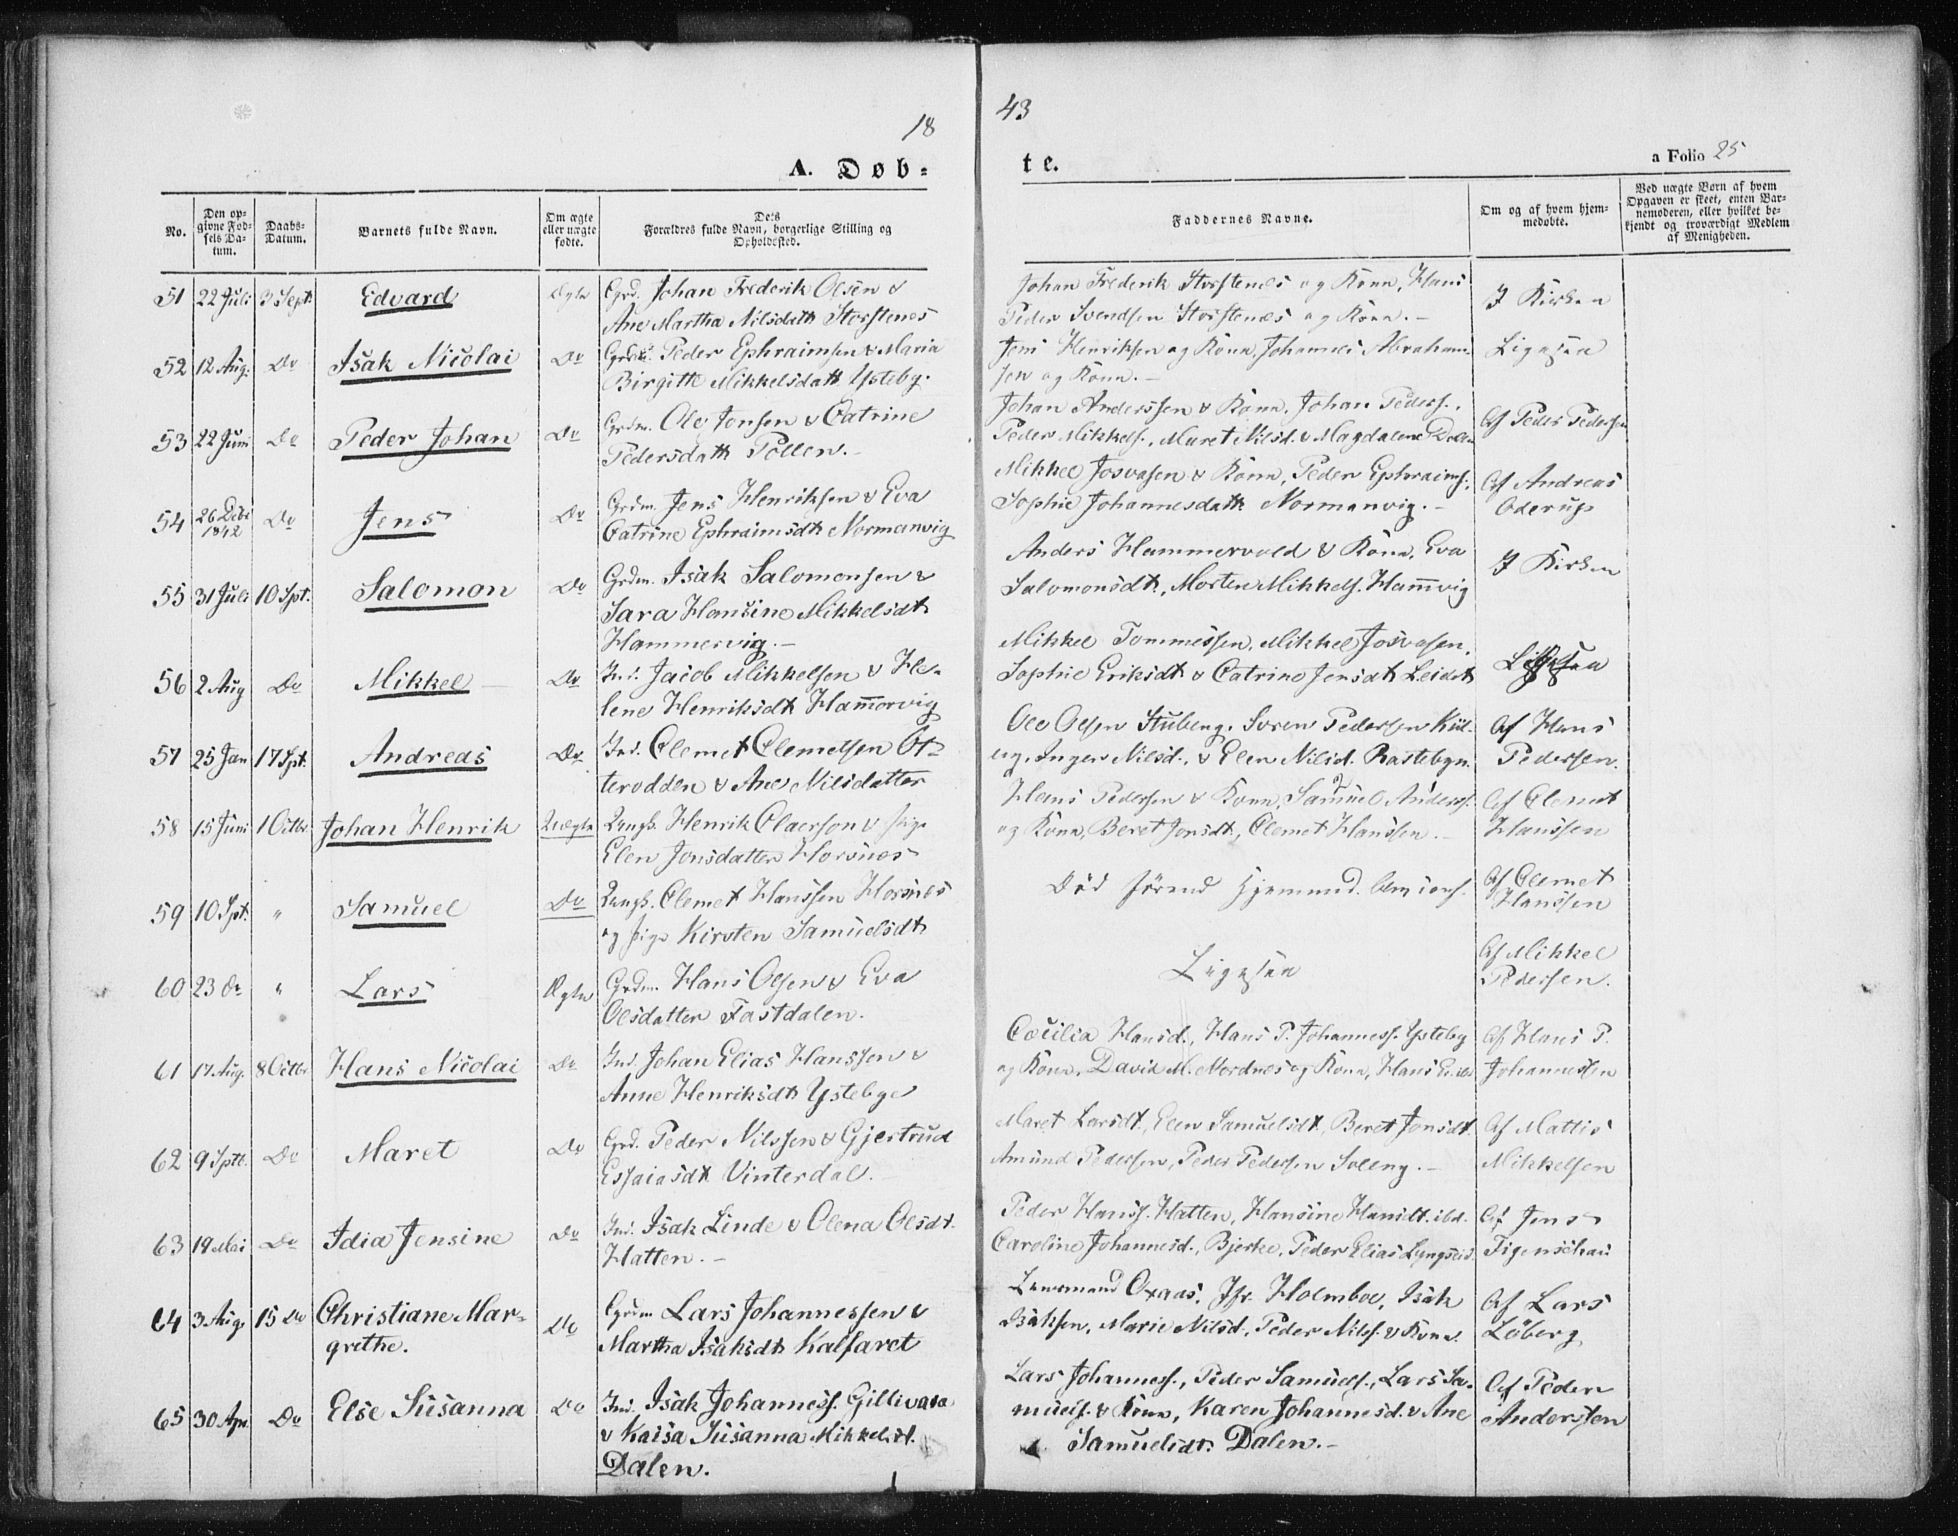 18
43
A. Døb-
te.
a Folio 25
No.
Den op-
givne Fød-
sels Da-
tum.
Daabs-
Datum.
Barnets fulde Navn.
Om ægte
eller uægte
fødte.
De's
Forældres fulde Navn, borgerlige Stilling og
Opholdssted.
Faddernes Navne.
Om og af hvem hjem-
medøbte.
Ved uægte Børn af hvem
Opgaven er skeet, enten Bar-
nemoderen, eller hvilket be-
kjendt og troværdigt Medlem
af Menigheden.
51 22 Juli 3 Sept. Edvard Ægte Grd. Johan Frederik Olsen &
Ane Martha Nilsdatt Storstenes
Johan Frederik Storstenes og Kone, Hans
Peder Svendsen Storstenes og Kone.-
I Kirken
52 12 Aug. Do Isak Nicolai Do Grdm. Peder Ephraimsen & Maria
Birgitte Mikkelsdatt Ysteby.
Jens Henriksen og Kone, Johannes Abraham-
sen og Kone.-
Ligesaa
53 22 Juni Do Peder Johan Do Grdm. Ole Jonsen & Catrine
Pedersdatt Pollen.-
Johan Anderssen & Kone, Johan Peders.,
Peder Mikkels., Maret Nilsd. & Magdalena
Af Peder Pedersen
54 26 Debr 1842 Do Jens Do Grdm. Jens Henriksen & Eva
Catrine Ephraimsdt Normanvig
Mikkel Josvasen & Kone, Peder Ephraims.,
Sophie Johannesdatt Normanvig.-
Af Andreas
Oderup
55 31 Juli 10 Spt. Salomon Do Grdm. Isak Salomonsen &
Sara Hansine Mikkelsdt
Hammervig.-
Anders Hammervold & Kone, Eva
Salomonsdt., Morten Mikkels. Ham̄vig
I Kirken
56 2 Aug Do Mikkel Do Ind. Jacob Mikkelsen & He-
lene Henriksdt Ham̄ervig
Mikkel Tommessen, Mikkel Josvasen,
Sophie Eriksdt & Catrine Jensdt Leidet
Ligesaa
57 25 Jan 17 Spt. Andreas Do Ind. Clemet Clemetsen Ot-
terodden & Ane Nilsdatter
Ole Olsen Stubeng, Soren Pedersen Kil-
eng, Inger Nilsd., & Elen Nilsd. Rasteby.
Af Hans
Pedersen.
58 15 Juni 1 Octbr. Johan Henrik Uægte Ungk. Henrik Olaerson & Pige
Elen Jonsdatter Horsnes
Hans Pedersen & Kone, Samuel Anders.
og Kone, Beret Jonsdt, Clemet Hanssen.-
Af Clemet
Hanssen
59 10 Spt. " Samuel Do Ungk. Clemet Hanssen Horsnes
og Pige Kirsten Samuelsdt
Død førend
Af Clemet
Hanssen
60 23 Do " Lars Ægte Grdm. Hans Olsen & Eva
Olsdatter Fastdalen.
Ligesaa
Af Mikkel
Pedersen.
61 17 Aug. 8 Octbr Hans Nicolai Do Ind. Johan Elias Hanssen &
Anne Henriksdt Ysteby
Cecilia Hansd., Hans P. Johanness. Ysteby
og Kone, David M. Nordnes og Kone, Hans
Af Hans P.
Johannessen
62 9 Sptb. Do Maret Do Grd. Peder Nilssen & Gjertrud
Essaiasdt Vinterdal.
Maret Larsdt, Elen Samuelsdt, Beret Jonsdt.
Amund Pedersen, Peder Pedersen Soleng.-
Af Mattis
Mikkelsen
63 19 Mai Do Idia Jensine Do Ind. Isak Linde & Olena Olsdt.
Hatten.-
Peder Hanss. Hatten, Hansine Hansdt. ibd.
Caroline Johannesd., Bjerke, Peder Elias Lyngseid.
Af Jens
Figenschau
64 3 Aug. 15 Do Christiane Mar-
grethe.
Do Grdm Lars Johannessen &
Martha Isaksdt Kalfaret
Lensmand Oxaas, Jfr. Holmboe, Isak
Isaksen, Marie Nilsd., Peder Nils. & Kone.
Af Lars
Løberg
65 30 Apr. Do Else Susanna Do Ind. Isak Johanness. Gillivara
& Kaisa Susanna Mikkelsdt.
Dalen.
Lars Johanness., Peder Samuels., Lars Sa-
muels. & Kone, Karen Johannesd. & Ane
Samuelsdt. Dalen.-
Af Peder
Anderssen